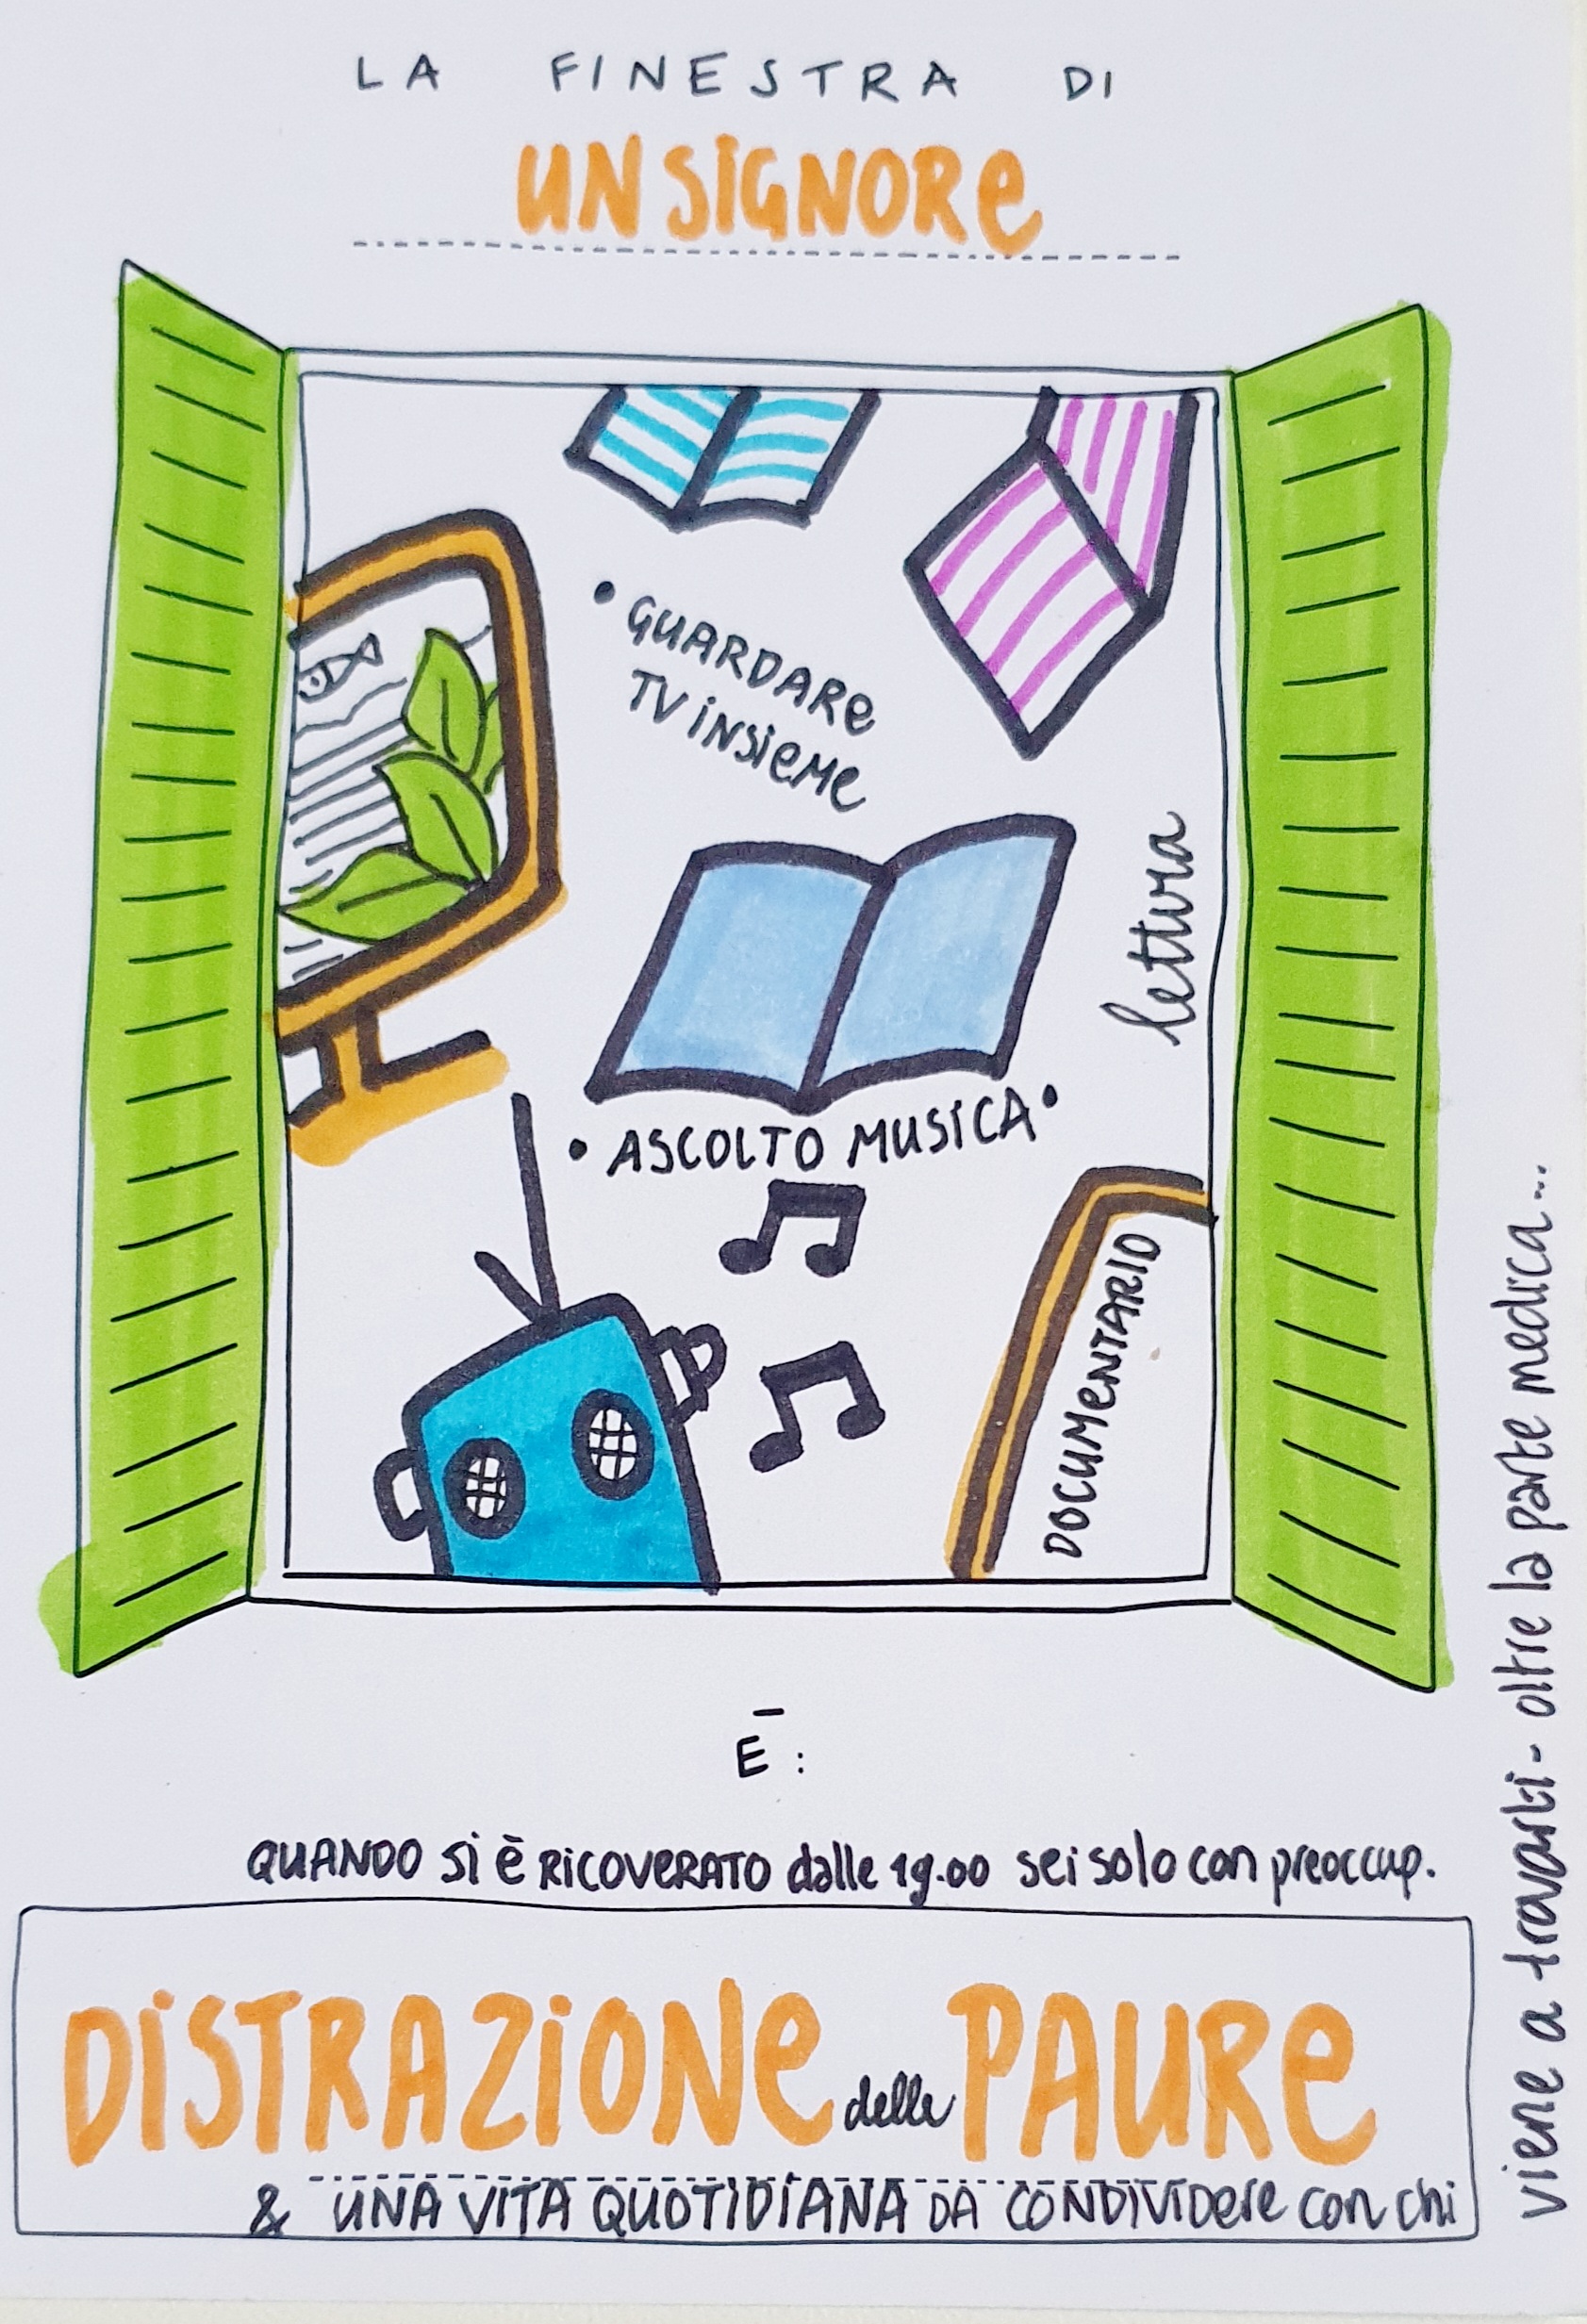 LA FINESTRA DI
UN SIGNORE
• GUARDARE
TV INSIEME
lettura
• ASCOLTO MUSICA •
DOCUMENTARIO
È :
QUANDO SI È RICOVERATO dalle 19.00 sei solo con preoccup.
DISTRAZIONE delle PAURE
& UNA VITA QUOTIDIANA DA CONDIVIDERE con chi
viene a trovarti - oltre la parte medica...